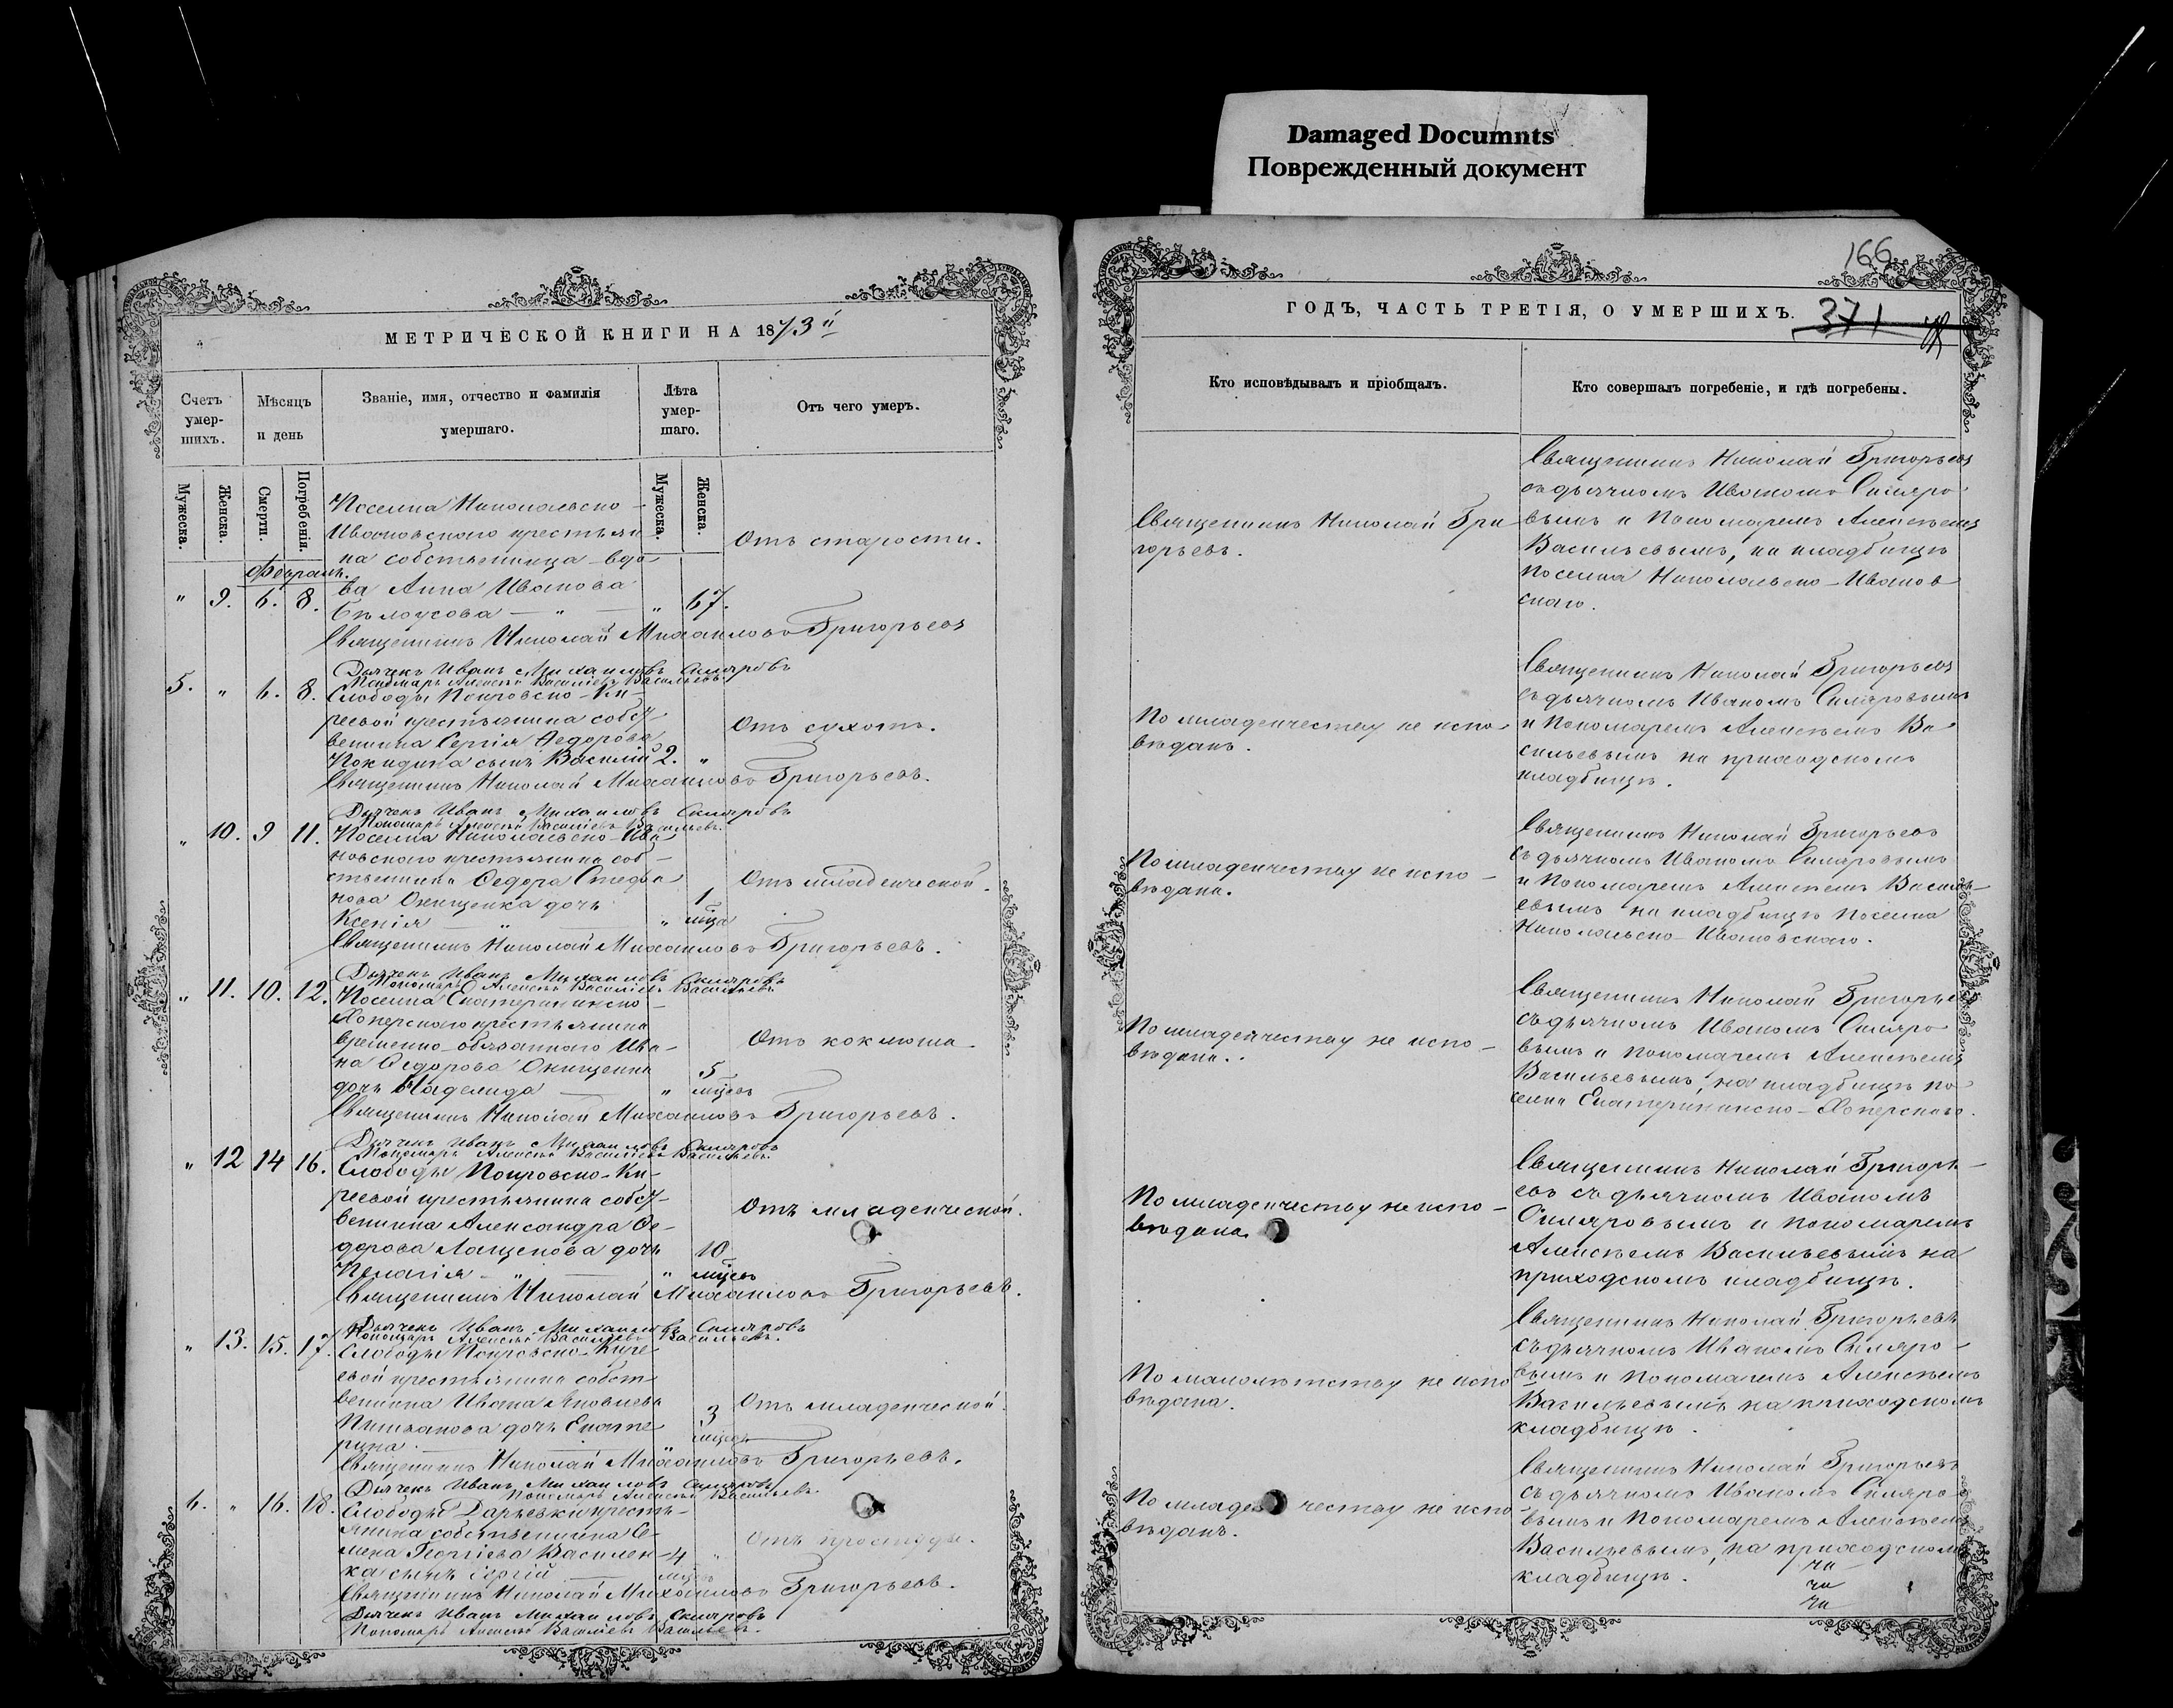 Damaged Documnts
Поврежденный документ
МЕТРИЧЕСКОЙ КНИГИ НА 1873й
Счетъ умер-
шихъ.
Мѣсяцъ
и день
Званіе, имя, отчество и фамилія
умершаго.
Лѣта
умер-
шаго.
Отъ чего умеръ.
Мужеска.
Женска.
Смерти.
Погребенія.
Мужеска.
Женска.
Февраль.
Поселка Николаевско-
Ивановскаго крестьян
ка собственница вдо-
ва Анна Иванова
" 9. 6. 8. Бѣлоусова — " — " 67.
Отъ старости.
Священникъ Николай Михаиловъ Григорьевъ
Дьячекъ Иванъ Михаиловъ Скляровъ
Пономарь Алексѣй Василіевъ Васильевъ.
5. " 6. 8. Слободы Покровско-Ки-
реевой крестьянина собст-
венника Сергія Федорова
сынъ Василій 2. "
Отъ сухотъ.
Священникъ Николай Михаиловъ Григорьевъ.
Дьячекъ Иванъ Михаиловъ Скляровъ
Пономарь Алексѣй Василіевъ Васильевъ.
" 10. 9 11. Поселка Николаевско-Ива
новскаго крестьянина соб-
ственника Федора Стефа
нова Онищенка дочь 1
Ксенія — " " мца
Отъ младенческой.
Священникъ Николай Михаиловъ Григорьевъ.
Дьячекъ Иванъ Михаиловъ Скляровъ
Пономарь Алексѣй Василіевъ Васильевъ.
" 11. 10. 12. Поселка Екатерининско-
Хоперскаго крестьянина
временно-обязаннаго Ива-
на Федорова Онищенка 5
дочь Надежда — " мцевъ
Отъ коклюша
Священникъ Николай Михаиловъ Григорьевъ.
Дьячекъ Иванъ Михаиловъ Скляровъ
Пономарь Алексѣй Василіевъ Васильевъ.
" 12 14 16. Слободы Покровско-Ки-
реевой крестьянина собст-
венника Александра Фе-
дорова Лащенова дочь 10
Пелагія — " — " мцевъ
Отъ младенческой.
Священникъ Николай Михаиловъ Григорьевъ.
Дьячекъ Иванъ Михаиловъ Скляровъ
Пономарь Алексѣй Василіевъ Васильевъ.
" 13. 15. 17. Слободы Покровско-Кире-
евой крестьянина собст-
венника Ивана Яковлева
дочь Екате 3
рина — " мцевъ
Отъ младенческой.
Священникъ Николай Михаиловъ Григорьевъ.
Дьячекъ Иванъ Михаиловъ Скляровъ
Пономарь Алексѣй Василіевъ Васильевъ.
6. " 16. 18. Слободы Дарьевки кресть-
янина собственника Се-
мена Георгіева Василен- 4 "
ка сынъ Сергій — мцевъ
Отъ простуды.
Священникъ Николай Михаиловъ Григорьевъ.
Дьячекъ Иванъ Михаиловъ Скляровъ
Пономарь Алексѣй Василіевъ Васильевъ.
166
ГОДЪ, ЧАСТЬ ТРЕТІЯ, О УМЕРШИХЪ.
371
Кто исповѣдывалъ и пріобщалъ.
Кто совершалъ погребеніе, и гдѣ погребены.
Священникъ Николай Гри
горьевъ.
Священникъ Николай Григорьевъ
съ дьячкомъ Иваномъ Скляро
вымъ и Пономаремъ Алексѣемъ
Васильевымъ, на кладбищѣ
поселка Николаевско-Иванов
скаго.
По младенчеству не испо-
вѣданъ.
Священникъ Николай Григорьевъ
съ дьячкомъ Иваномъ Скляровымъ
и Пономаремъ Алексѣемъ Ва
сильевымъ на приходскомъ
кладбищѣ.
По младенчеству не испо-
вѣдана.
Священникъ Николай Григорьевъ
съ дьячкомъ Иваномъ Скляровымъ
и Пономаремъ Алексѣемъ Василь-
евымъ на кладбищѣ поселка
Николаевско-Ивановскаго.
По младенчеству не испо-
вѣдана.
Священникъ Николай Григорьев
съ дьячкомъ Иваномъ Скляро
вымъ и пономаремъ Алексѣемъ
Васильевымъ, на кладбищѣ по
селка Екатерининско-Хоперскаго.
По младенчеству не испо-
вѣдана.
Священникъ Николай Григорь-
евъ съ дьячкомъ Иваномъ
Скляровымъ и пономаремъ
Алексѣемъ Васильевымъ на
приходскомъ кладбищѣ.
По малолѣтству не испо
вѣдана.
Священникъ Николай Григорьевъ
съ дьячкомъ Иваномъ Скляро-
вымъ и пономаремъ Алексѣемъ
Васильевымъ на приходскомъ
кладбищѣ.
По младенчеству не испо
вѣданъ.
Священникъ Николай Григорьевъ
съ дьячкомъ Иваномъ Скляро
вымъ и Пономаремъ Алексѣемъ
Васильевымъ, на приходскомъ
кладбищѣ.